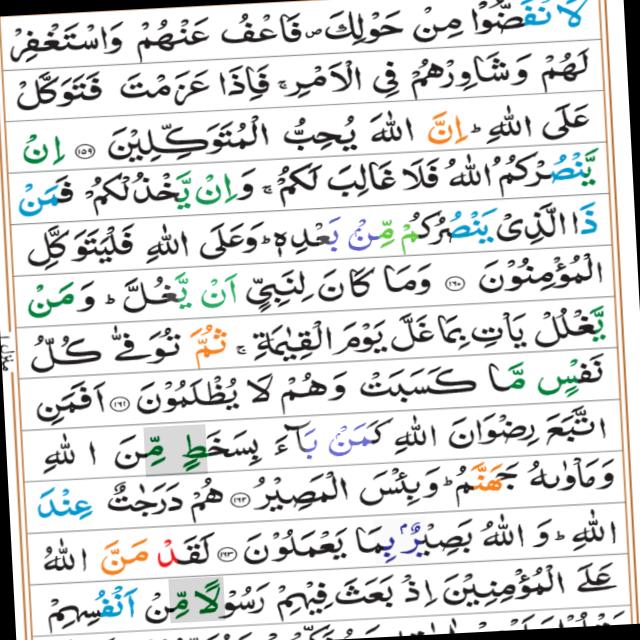 لَا نْفَضُّوْا مِنْ حَوْلِكَ ۪ فَاعْفُ عَنْهُمْ وَاسْتَغْفِرْ
لَهُمْ وَشَاوِرْهُمْ فِي الْاَمْرِ ۚ فَاِذَا عَزَمْتَ فَتَوَكَّلْ
عَلَى اللّٰهِ ؕ اِنَّ اللّٰهَ يُحِبُّ الْمُتَوَكِّلِيْنَ ﴿۱۵۹﴾ اِنْ
يَّنْصُرْكُمُ اللّٰهُ فَلَا غَالِبَ لَكُمْ ۚ وَاِنْ يَّخْذُلْكُمْ فَمَنْ
ذَا الَّذِىْ يَنْصُرُكُمْ مِّنْۢ بَعْدِهٖ ؕ وَعَلَى اللّٰهِ فَلْيَتَوَكَّلِ
الْمُؤْمِنُوْنَ ﴿۱۶۰﴾ وَمَا كَانَ لِنَبِيٍّ اَنْ يَّغُلَّ ؕ وَمَنْ
يَّغْلُلْ يَاْتِ بِمَا غَلَّ يَوْمَ الْقِيٰمَةِ ۚ ثُمَّ تُوَفّٰى كُلُّ
نَفْسٍ مَّا كَسَبَتْ وَهُمْ لَا يُظْلَمُوْنَ ﴿۱۶۱﴾ اَفَمَنِ
اتَّبَعَ رِضْوَانَ اللّٰهِ كَمَنْۢ بَآءَ بِسَخَطٍ مِّنَ اللّٰهِ
وَمَاْوٰىهُ جَهَنَّمُ ؕ وَبِئْسَ الْمَصِيْرُ ﴿۱۶۲﴾ هُمْ دَرَجٰتٌ عِنْدَ
اللّٰهِ ؕ وَ اللّٰهُ بَصِيْرٌۢ بِمَا يَعْمَلُوْنَ ﴿۱۶۳﴾ لَقَدْ مَنَّ اللّٰهُ
عَلَى الْمُؤْمِنِيْنَ اِذْ بَعَثَ فِيْهِمْ رَسُوْلًا مِّنْ اَنْفُسِهِمْ